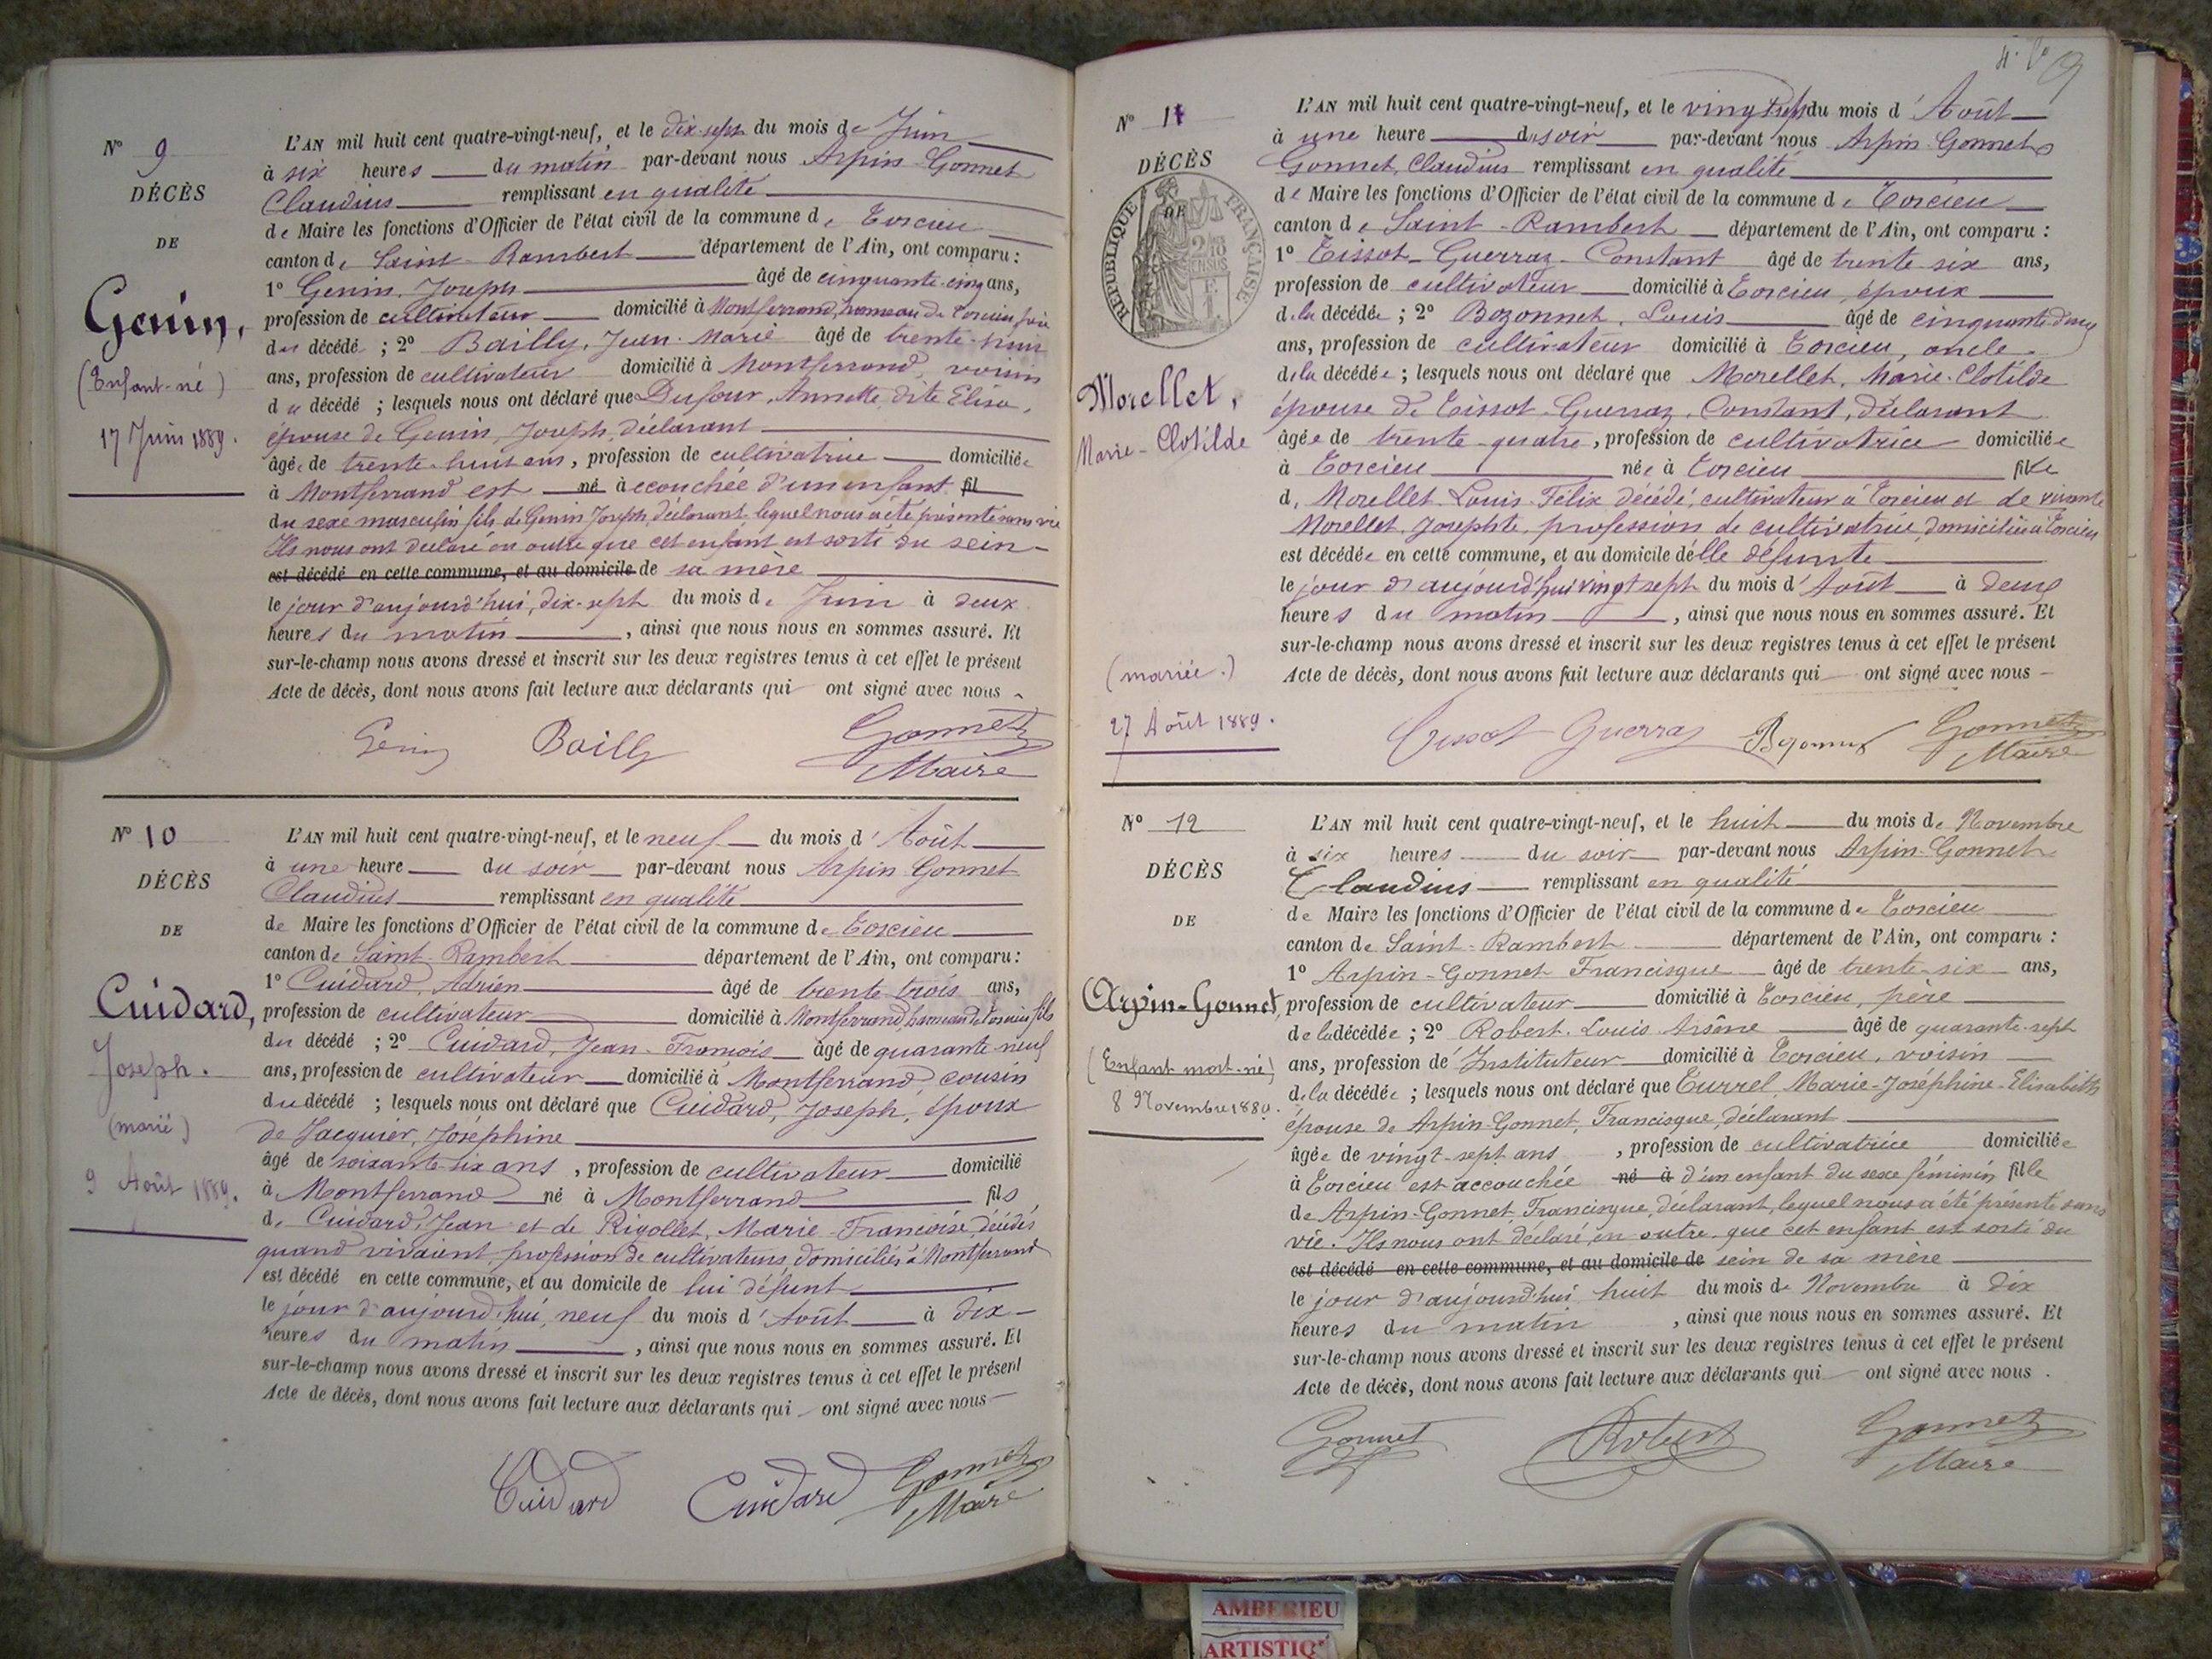 N° 9
DÉCÈS
DE
Genin,
(Enfant-né)
17 Juin 1889.
L'AN mil huit cent quatre-vingt-neuf, et le dix-sept du mois de Juin
à six heures du matin par-devant nous Arpin-Gonnet
Claudius remplissant en qualité
de Maire les fonctions d'Officier de l'état civil de la commune de Torcieu
canton de Saint-Rambert département de l'Ain, ont comparu :
1° Genin, Joseph âgé de cinquante-cinq ans,
profession de cultivateur domicilié à Montferrand, hameau de Torcieu, père
du décédé ; 2° Bailly, Jean-Marie âgé de trente-
ans, profession de cultivateur domicilié à Montferrand, voisin
du décédé ; lesquels nous ont déclaré que Dufour, Annette, dite Elisa,
épouse de Genin, Joseph, déclarant
âgée de trente-huit ans, profession de cultivatrice domiciliée
à Montferrand est né à accouchée d'un enfant fil
du sexe masculin fils de Genin Joseph, déclarant lequel nous a été présenté sans vie
Ils nous ont déclaré en outre que cet enfant est sorti du sein
est décédé en cette commune, et au domicile de sa mère
le jour d'aujourd'hui, dix-sept du mois de Juin à deux
heures du matin, ainsi que nous nous en sommes assuré. Et
sur-le-champ nous avons dressé et inscrit sur les deux registres tenus à cet effet le présent
Acte de décès, dont nous avons fait lecture aux déclarants qui ont signé avec nous
Genin Bailly Gonnet
Maire
N° 10
DÉCÈS
DE
Cuidard,
Joseph.
(marié)
9 Août 1889.
L'AN mil huit cent quatre-vingt-neuf, et le neuf du mois d'Août
à une heure du soir par-devant nous Arpin-Gonnet
Claudius remplissant en qualité
de Maire les fonctions d'Officier de l'état civil de la commune de Torcieu
canton de Saint-Rambert département de l'Ain, ont comparu :
1° Cuidard, Adrien âgé de trente-trois ans,
profession de cultivateur domicilié à Montferrand, hameau de Torcieu, fils
du décédé ; 2° Cuidard, Jean-François âgé de quarante-neuf
ans, profession de cultivateur domicilié à Montferrand, cousin
du décédé ; lesquels nous ont déclaré que Cuidard, Joseph, époux
de Jacquier, Joséphine
âgé de soixante-six ans, profession de cultivateur domicilié
à Montferrand né à Montferrand fils
de Cuidard, Jean et de Rigollet, Marie-Françoise, décédés
quand vivaient, profession de cultivateurs, domiciliés à Montferrand
est décédé en cette commune, et au domicile de lui défunt
le jour d'aujourd'hui, neuf du mois d'Août à dix
heures du matin, ainsi que nous nous en sommes assuré. Et
sur-le-champ nous avons dressé et inscrit sur les deux registres tenus à cet effet le présent
Acte de décès, dont nous avons fait lecture aux déclarants qui ont signé avec nous
Cuidard Cuidard Gonnet
Maire
N° 11
DÉCÈS
DE
RÉPUBLIQUE FRANÇAISE
Morellet,
Marie-Clotilde
(mariée.)
27 Août 1889.
L'AN mil huit cent quatre-vingt-neuf, et le vingt sept du mois d'Août
à une heure du soir par-devant nous Arpin-Gonnet
Gonnet, Claudius remplissant en qualité
de Maire les fonctions d'Officier de l'état civil de la commune de Torcieu
canton de Saint-Rambert département de l'Ain, ont comparu :
1° Tissot-Guerraz-Constant âgé de trente-six ans,
profession de cultivateur domicilié à Torcieu, époux
de la décédée ; 2° Bozonnet, Louis âgé de cinquante-deux
ans, profession de cultivateur domicilié à Torcieu, oncle
de la décédée ; lesquels nous ont déclaré que Morellet, Marie-Clotilde
épouse de Tissot-Guerraz, Constant, déclarant
âgée de trente-quatre, profession de cultivatrice domiciliée
à Torcieu née à Torcieu fille
de Morellet Louis-Félix décédé, cultivateur à Torcieu et de vivante
Morellet Josephte, profession de cultivatrice, domiciliée à Torcieu
est décédée en cette commune, et au domicile d'elle défunte
le jour d'aujourd'hui vingt sept du mois d'Août à deux
heures du matin, ainsi que nous nous en sommes assuré. Et
sur-le-champ nous avons dressé et inscrit sur les deux registres tenus à cet effet le présent
Acte de décès, dont nous avons fait lecture aux déclarants qui ont signé avec nous
Tissot Guerraz Bozonnet Gonnet
Maire
N° 12
DÉCÈS
DE
Arpin-Gonnet,
(Enfant mort-né)
8 Novembre 1889.
L'AN mil huit cent quatre-vingt-neuf, et le huit du mois de Novembre
à six heures du soir par-devant nous Arpin-Gonnet
Claudius remplissant en qualité
de Maire les fonctions d'Officier de l'état civil de la commune de Torcieu
canton de Saint-Rambert département de l'Ain, ont comparu :
1° Arpin-Gonnet Francisque âgé de trente-six ans,
profession de cultivateur domicilié à Torcieu, père
de la décédée ; 2° Robert, Louis Arsène âgé de quarante-sept
ans, profession de Instituteur domicilié à Torcieu, voisin
de la décédée ; lesquels nous ont déclaré que Turrel, Marie-Joséphine-Elisabeth
épouse de Arpin-Gonnet, Francisque, déclarant
âgée de vingt-sept ans, profession de cultivatrice domiciliée
à Torcieu est accouchée né à d'un enfant du sexe féminin fille
de Arpin-Gonnet Francisque, déclarant, lequel nous a été présenté sans
vie. Ils nous ont déclaré en outre que cet enfant est sorti du
est décédé en cette commune, et au domicile de sein de sa mère
le jour d'aujourd'hui huit du mois de Novembre à dix
heures du matin, ainsi que nous nous en sommes assuré. Et
sur-le-champ nous avons dressé et inscrit sur les deux registres tenus à cet effet le présent
Acte de décès, dont nous avons fait lecture aux déclarants qui ont signé avec nous.
Gonnet Robert Gonnet
Maire
AMBERIEU
ARTISTIQ